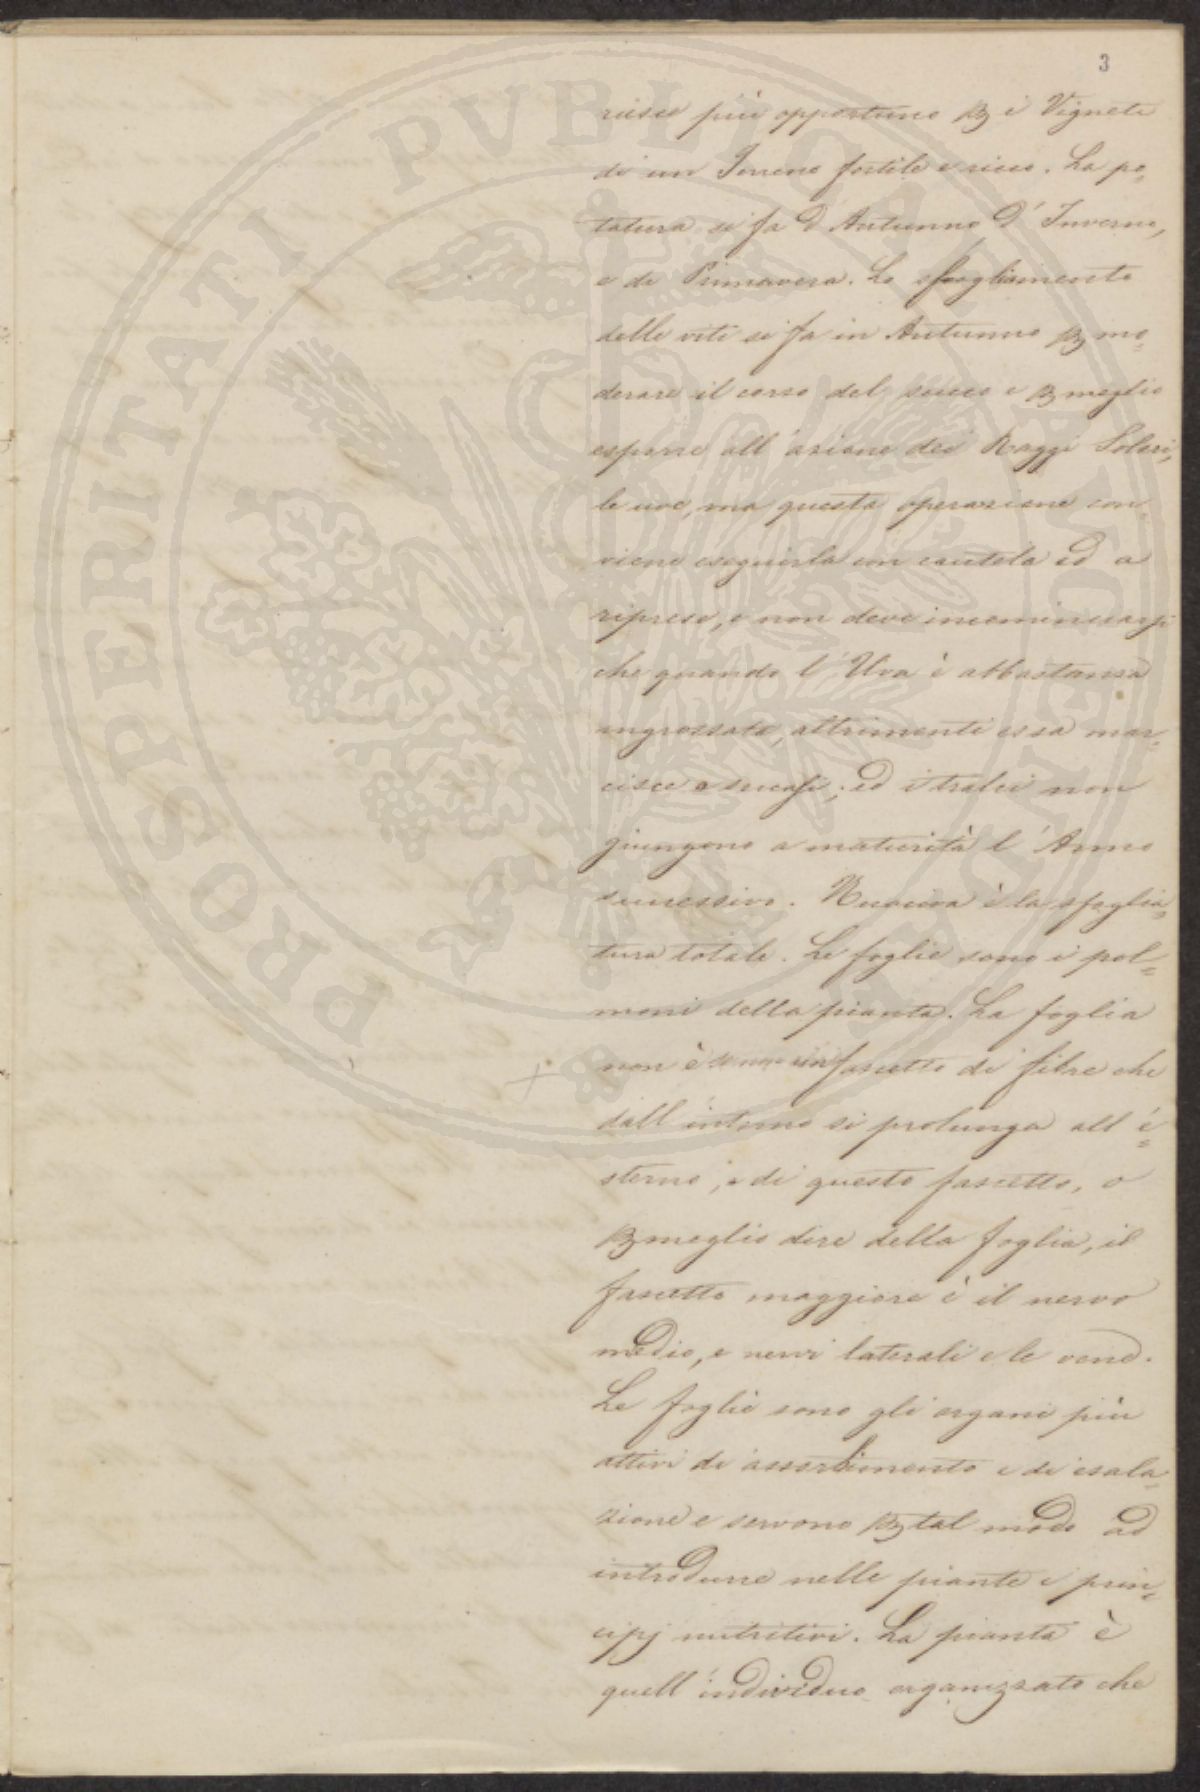 3
riesce più opportuno p i Vigneti
di un Terreno fertile e ricco. La po=
tatura si fa d'Autunno d'Inverno,
e di Primavera. Lo sfogliamento
delle viti si fa in Autunno p mo=
derare il corso del succo e p meglio
esporre all'azione dei Raggi Solari,
le uve, ma questa operazione con=
viene eseguirla con cautela ed a
riprese, e non deve incominciarsi
che quando l'Uva è abbastanza
ingrossata, altrimenti essa mar=
cisce o seccasi; ed i tralci non
giungono a maturità l'Anno
successivo. Nuociva è la sfoglia=
tura totale. Le foglie sono i pol=
moni della pianta. La foglia
non è se non un fascetto di fibre che
dall'interno si prolunga all'e=
sterno, e di questo fascetto, o
p meglio dire della foglia, il
fascetto maggiore è il nervo
medio, e nervi laterali e le vene.
Le foglie sono gli organi più
attivi di assorbimento e di esala=
zione e servono p tal modo ad
introdurre nelle piante i prin=
cipj nutritivi. La pianta è
quell'individuo organizzato che
PROSPERITATI PVBLICAE